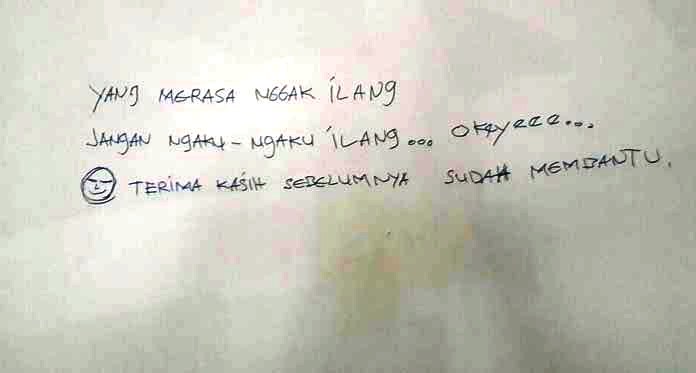 YANG MERASA NGGAK ILANG
JANGAN NGAKU-NGAKU ILANG... Okeyeee...
TERIMA KASIH SEBELUMNYA SUDAH MEMBANTU.